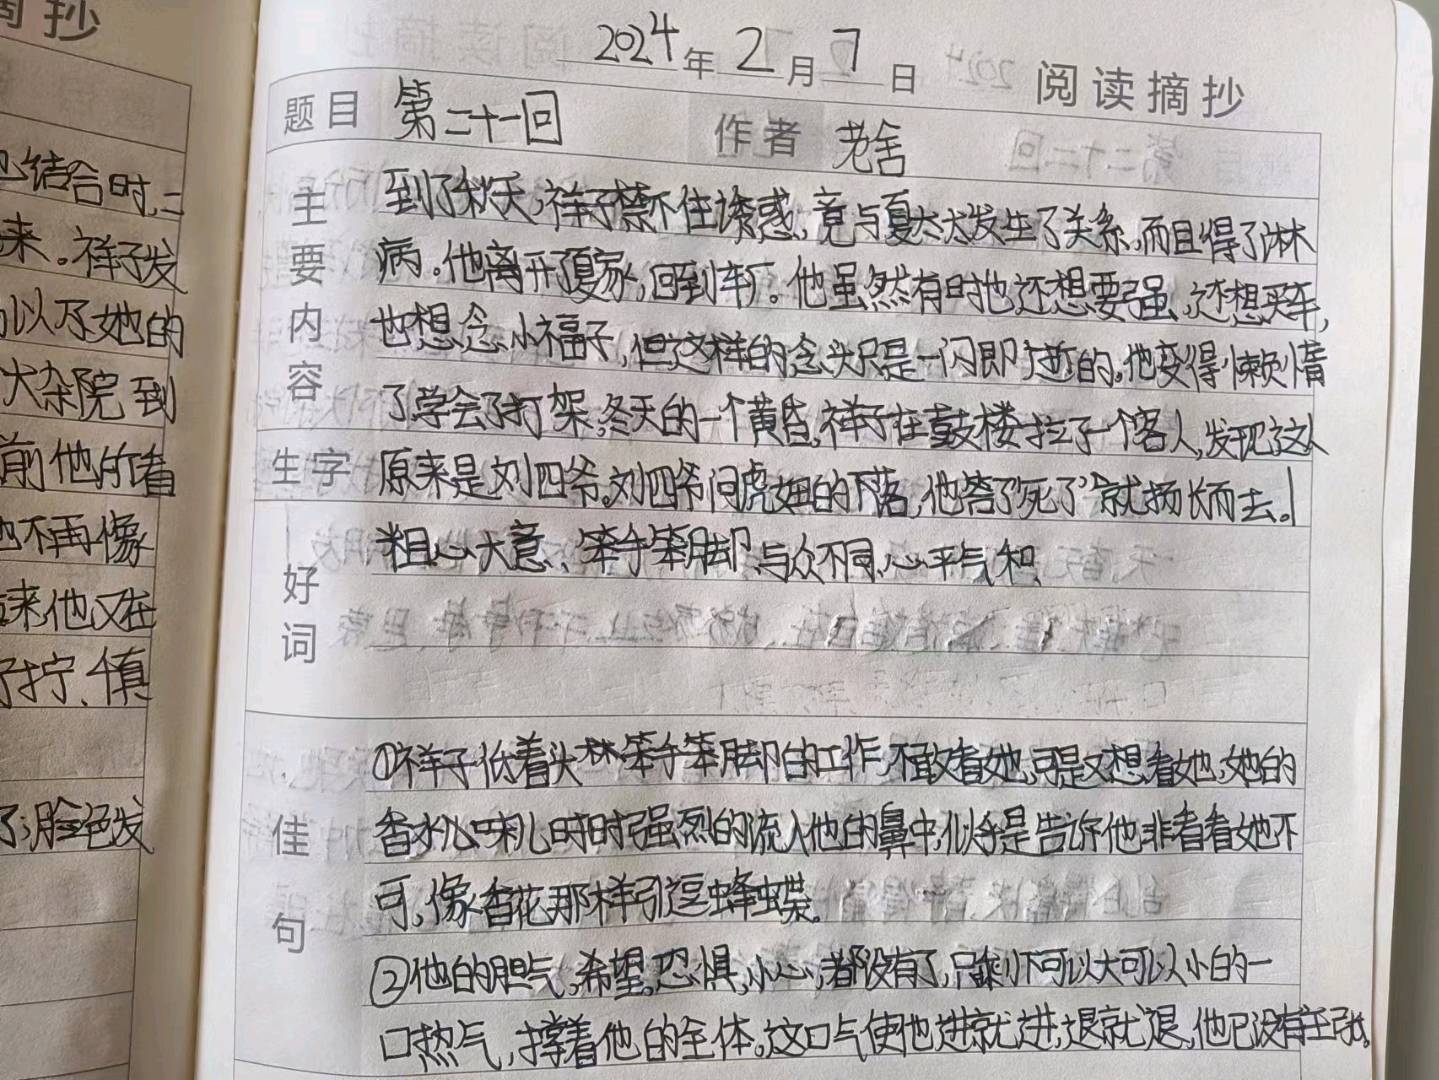 摘抄
也结合时,二
来。祥子发
以及她的
大杂院到
前他的看
也不再像
来他又在
子拧、慎
了;脸色发
2024年2月7日 阅读摘抄
题目 第二十一回 作者 老舍
主要内容
到了秋天,祥子禁不住诱惑,竟与夏太太发生了关系,而且得了淋
病。他离开了夏家,回到车厂。他虽然有时也还想要强,还想买车,
也想念小福子,但这样的念头只是一闪即逝的。他变得懒惰
了,学会了打架。冬天的一个黄昏,祥子在鼓楼拉了一个客人,发现这人
生字 原来是刘四爷。刘四爷问虎妞的下落,他答了“死了”就扬长而去。
好词
粗心大意、笨手笨脚、与众不同、心平气和
佳句
①祥子低着头笨手笨脚的工作,不敢看她,可是又想看她,她的
香水味儿时时强烈的流入他的鼻中,似乎是告诉他非看看她不
可,像香花那样引逗蜂蝶。
②他的胆气,希望,恐惧,小心,都没有了,只剩下可以大可以小的一
口热气,撑着他的全体。这口气使他进就进,退就退,他已没有主张。